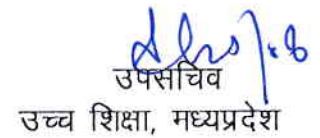 उपसचिव
उच्च शिक्षा, मध्यप्रदेश